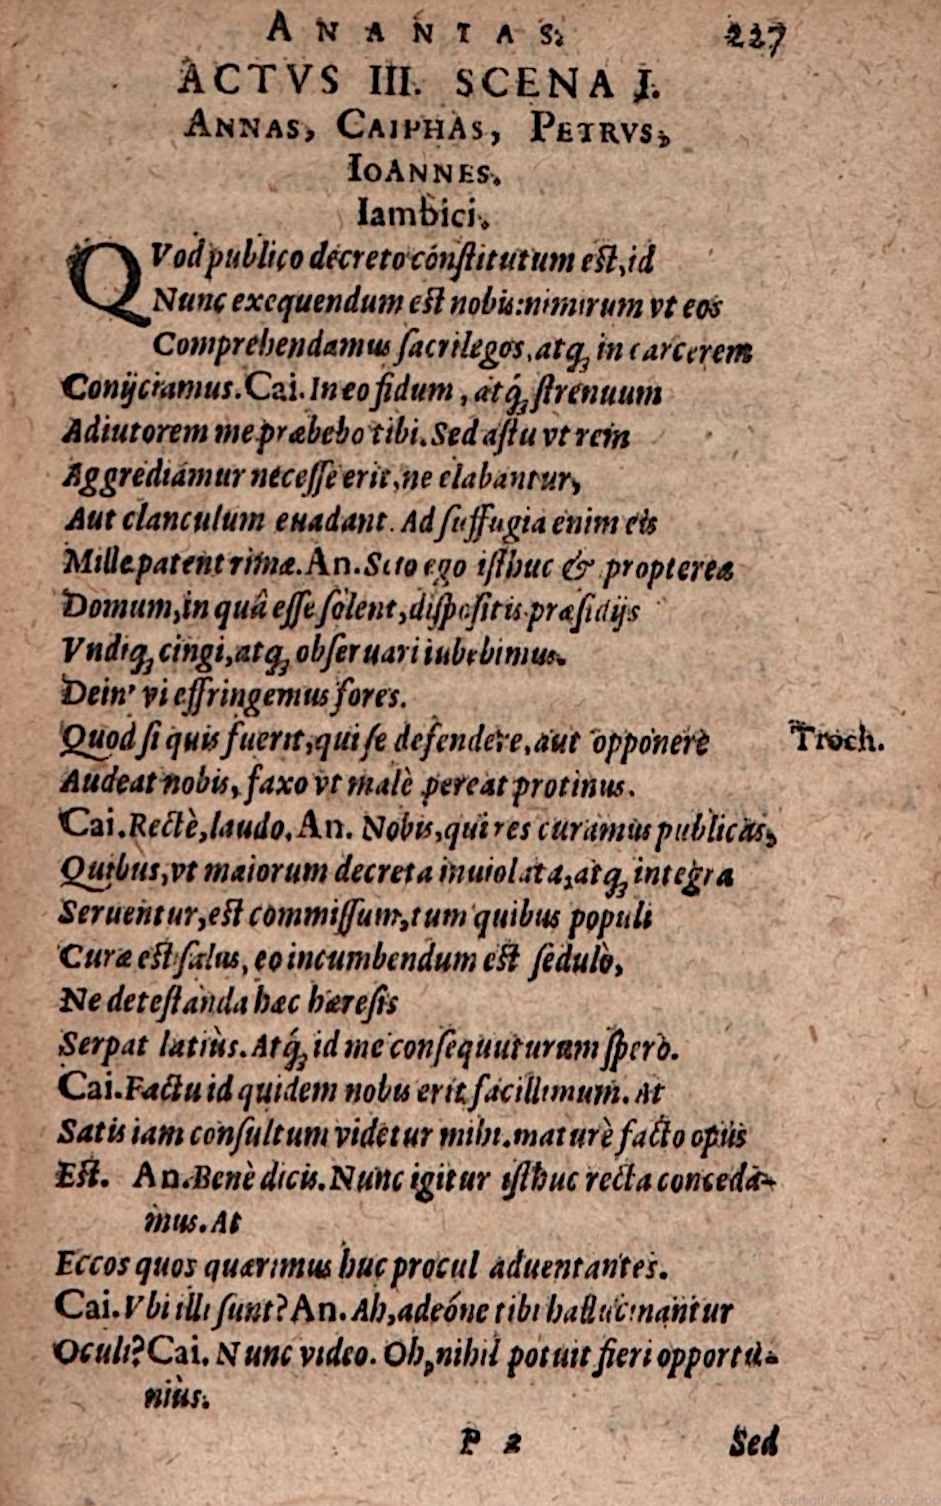 ANANTAS. 227
ACTVS III. SCENA I.
ANNAS, CAIPHAS, PETRVS,
IOANNES.
Iambici.
QVod publico decreto cõnſtitutum eſt, id
Nunc exequendum eſt nobis: nimirum vt eos
Comprehendamus ſacrilegos, atq; in carcerem
Conijciamus. Cai. In eo fidum, atq́; ſtrenuum
Adiutorem me præbebo tibi. Sed aſtu vt rem
Aggrediamur neceſſe erit, ne elabantur,
Aut clanculum euadant. Ad ſuffugia enim eis
Mille patent rimæ. An. Scio ego iſthuc & propterea
Domum, in quâ eſſe ſolent, diſpoſitis præſidijs
Vndiq; cingi, atq; obſeruari iubebimus.
Dein' vi effringemus fores.
Quod ſi quis fuerit, qui ſe defendere, aut opponere Troch.
Audeat nobis, faxo vt malè pereat protinus.
Cai. Rectè, laudo. An. Nobis, qui res curamus publicas,
Quibus, vt maiorum decreta inuiolata, atq; integra
Seruentur, eſt commiſſum, tum quibus populi
Curæ eſt ſalus, eo incumbendum eſt ſedulò,
Ne deteſtanda hæc hæreſis
Serpat latiùs. Atq́; id me conſequuturum ſpero.
Cai. Factu id quidem nobis erit facillimum. At
Satis iam conſultum videtur mihi. maturè facto opus
Eſt. An. Benè dicis. Nunc igitur iſthuc recta conceda-
mus. At
Eccos quos quærimus huc procul aduentantes.
Cai. Vbi illi ſunt? An. Ah, adeóne tibi hallucinantur
Oculi? Cai. Nunc video. Oh, nihil potuit fieri opportu-
niùs.
P 2 Sed